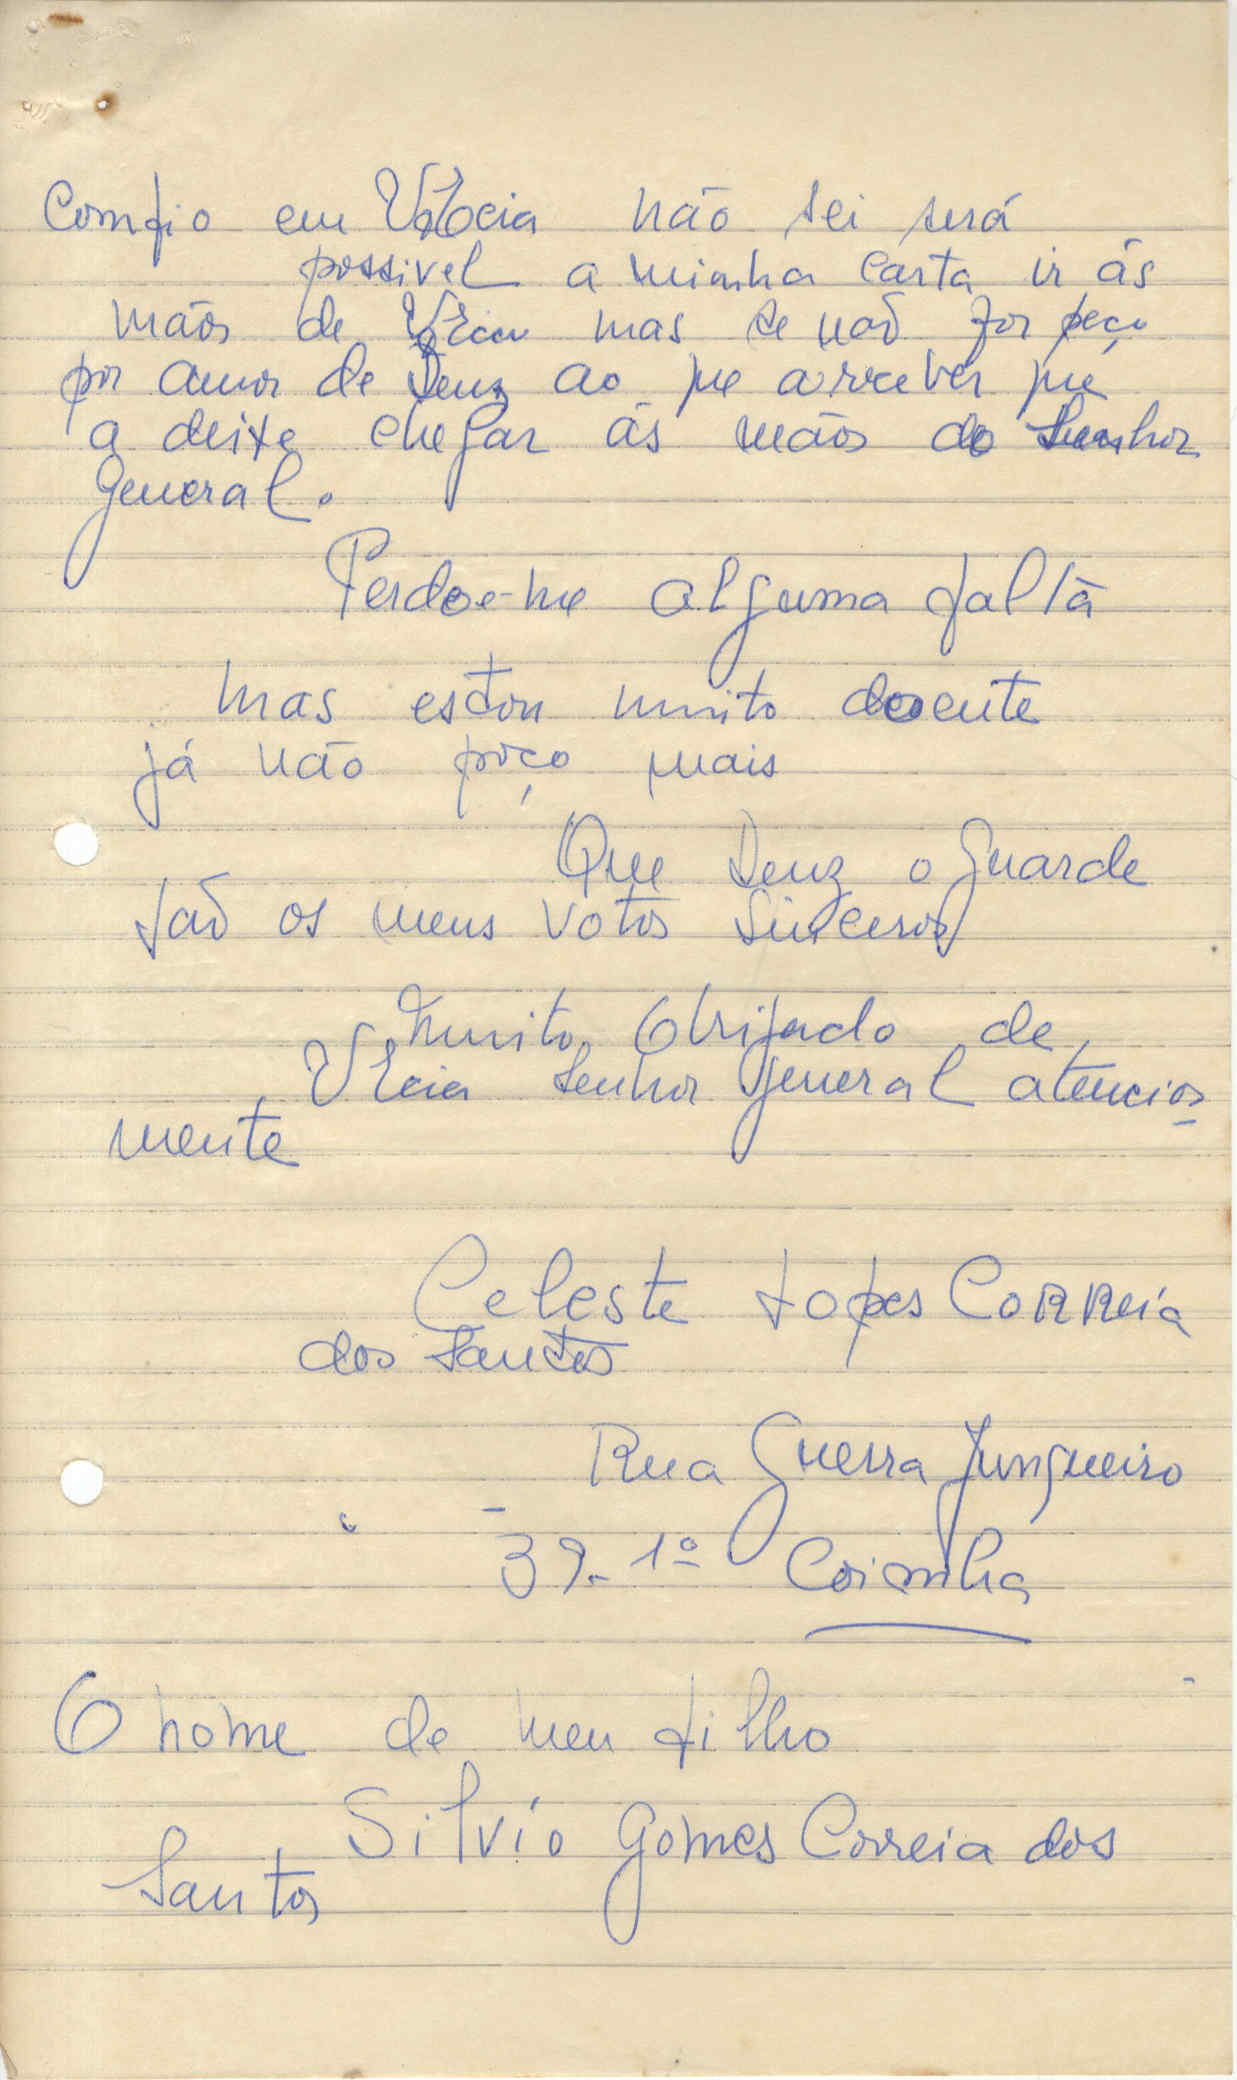 Comfio em V. Ecia não sei será
possivel a minha carta ir ás
mãos de V. Ecia mas se não for peço
por amor de Deuz ao que a rreceber que
a deixe chegar ás mãos do Senhor
General.
Perdoe-me alguma falta
mas estou muito doente
já não poço mais
Que Deuz o guarde
são os meus votos sinceros
Muito Obrigado de
V Ecia Senhor General atencios
mente
Celeste Lopes Correia
dos Santos
Rua Guerra Junqueiro
39-1º Coimbra
O nome de meu filho
Silvío Gomes Correia dos
Santos